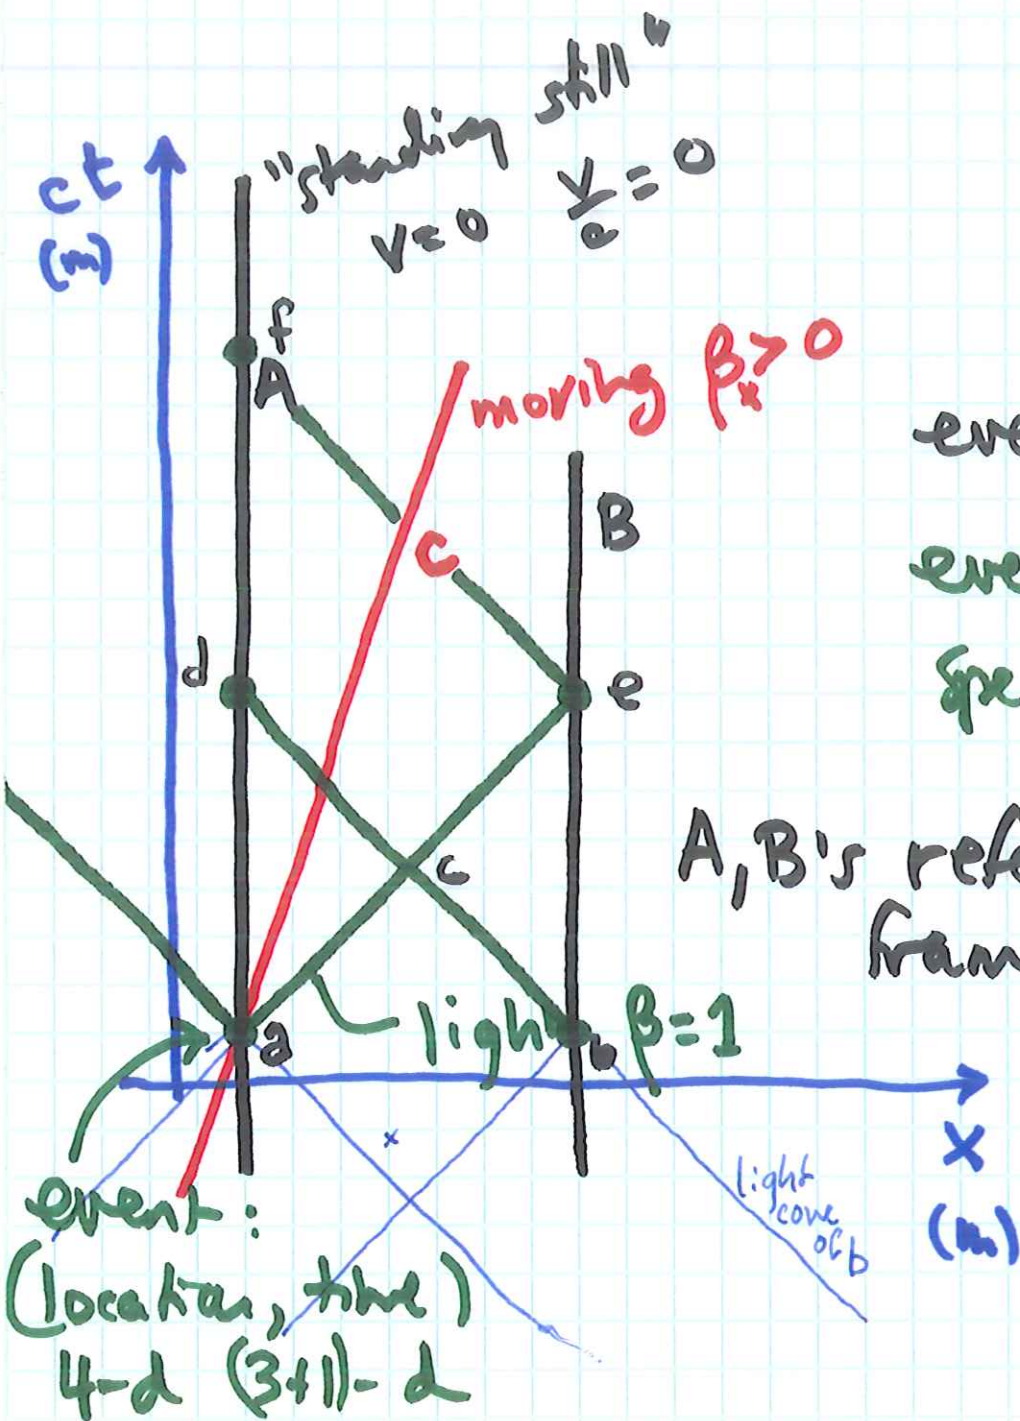 "standing still"
v=0 v/c=0
ct
(m)
f
A
moving βx>0
eve
B
C
eve
d
e
Spe
c
A, B's refe
fram
a
light
b
β=1
x
x
(m)
light
cone
of b
event:
(location, time)
4-d (3+1)-d